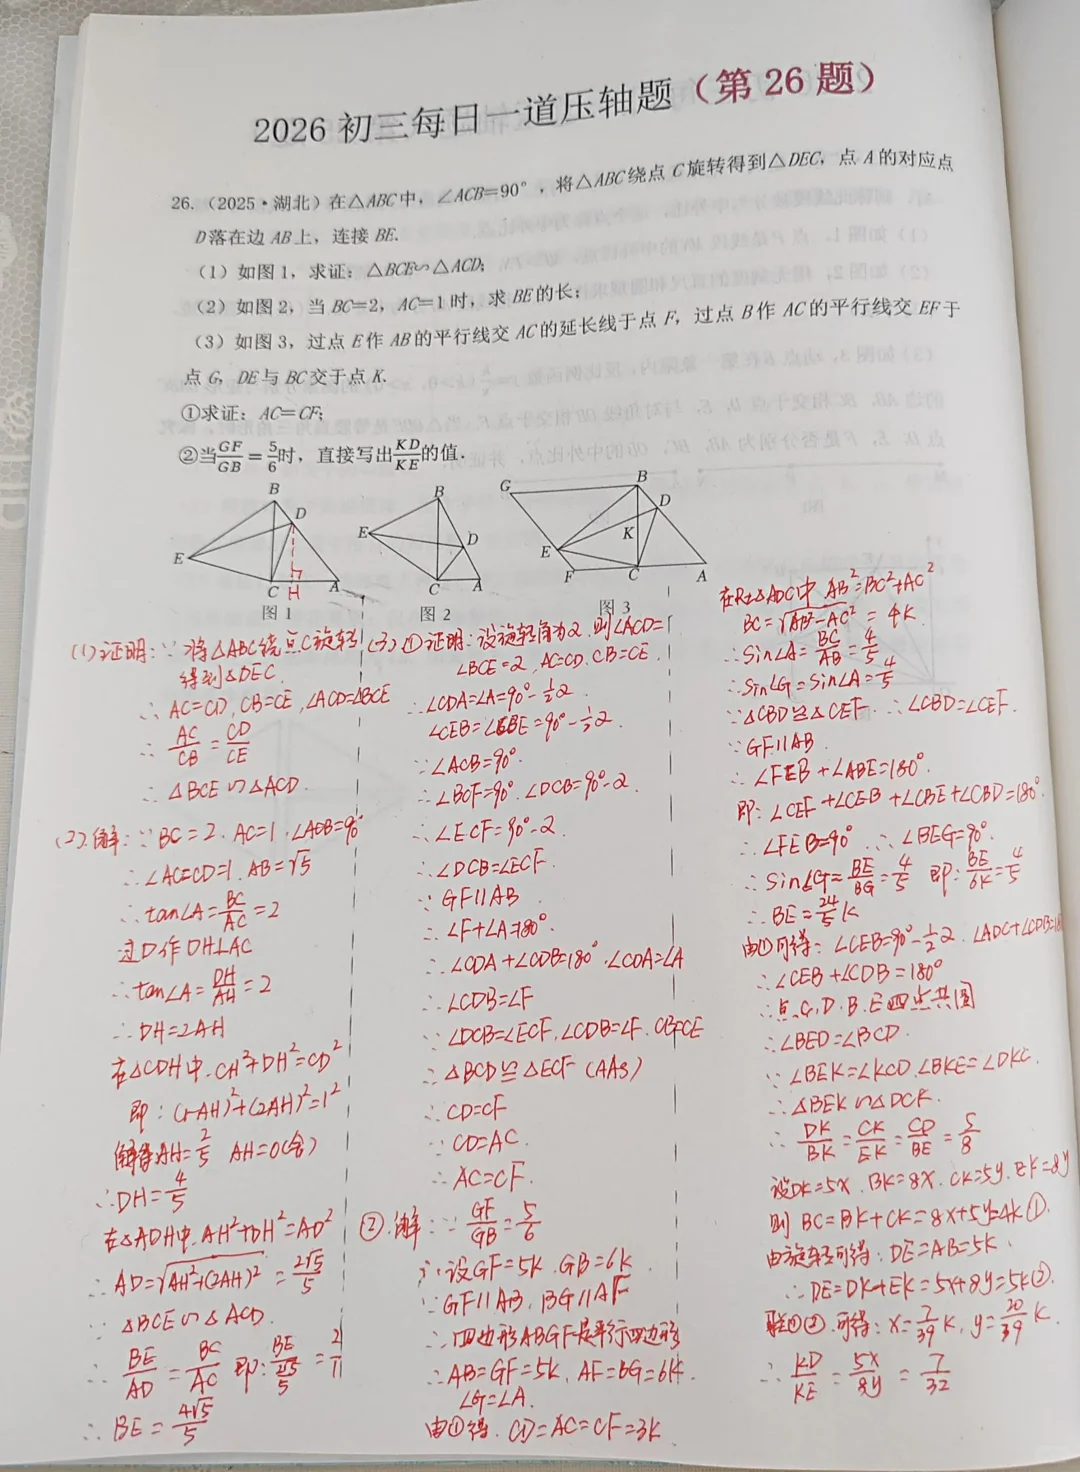 2026 初三每日一道压轴题（第 26 题）
26.（2025·湖北）在△ABC中，∠ACB=90°，将△ABC绕点C旋转得到△DEC，点A的对应点
D落在边AB上，连接BE.
（1）如图1，求证：△BCE∽△ACD；
（2）如图2，当BC=2，AC=1时，求BE的长；
（3）如图3，过点E作AB的平行线交AC的延长线于点F，过点B作AC的平行线交EF于
点G，DE与BC交于点K.
①求证：AC=CF；
②当GF/GB=5/6时，直接写出KD/KE的值.
B
D
E
C H A
图1
B
E
D
C A
图2
G B
D
K
E
F C A
图3
(1)证明：∵将△ABC绕点C旋转
得到△DEC.
∴AC=CD, CB=CE, ∠ACD=∠BCE
∴AC/CB=CD/CE
∴△BCE∽△ACD.
(2).解：∵BC=2. AC=1. ∠ACB=90°
∴∠AC=CD=1. AB=√5
∴tan∠A=BC/AC=2
过D作DH⊥AC
∴tan∠A=DH/AH=2
∴DH=2AH
在△CDH中.CH²+DH²=CD²
即：(1-AH)²+(2AH)²=1²
解得AH=2/5 AH=0(舍)
∴DH=4/5
在△ADH中.AH²+DH²=AD²
∴AD=√AH²+(2AH)²=2√5/5
∵△BCE∽△ACD.
∴BE/AD=BC/AC 即:BE/(2√5/5)=2/1
∴BE=4√5/5
(3)①证明：设旋转角为2.则∠ACD=
∠BCE=2, AC=CD. CB=CE.
∴∠CDA=∠A=90°-½2.
∠CEB=∠EBE=90°-½2.
∵∠ACB=90°.
∴∠BCF=90°.∠DCB=90°-2.
∴∠ECF=90°-2.
∴∠DCB=∠ECF.
∵GF∥AB
∴∠F+∠A=180°.
∴∠CDA+∠CDB=180°.∠CDA=∠A
∴∠CDB=∠F
∵∠DCB=∠ECF.∠CDB=∠F. CB=CE
∴△BCD≌△ECF (AAS)
∴CD=CF
∵CD=AC.
∴AC=CF.
②.解：∵GF/GB=5/6
∴设GF=5k.GB=6k.
∵GF∥AB, BG∥AF
∴四边形ABGF是平行四边形
∴AB=GF=5k, AF=BG=6k.
∠G=∠A.
由①得.CD=AC=CF=3k
在Rt△ADC中.AB²=BC²+AC²
BC=√AB²-AC²=4k
∴sin∠A=BC/AB=4/5
∴sin∠G=sin∠A=4/5
∵△CBD≌△CEF.∴∠CBD=∠CEF.
∵GF∥AB
∴∠FEB+∠ABE=180°.
即：∠CEF+∠CEB+∠CBE+∠CBD=180°
∴∠FEB=90°∴∠BEG=90°.
∴sin∠G=BE/BG=4/5 即:BE/6k=4/5
∴BE=24/5k
由①可得：∠CEB=90°-½2.∠ADC+∠CDB=18
∴∠CEB+∠CDB=180°
∴点C.D.B.E四点共圆
∴∠BED=∠BCD.
∵∠BEK=∠KCD.∠BKE=∠DKC.
∴△BEK∽△DCK.
∴DK/BK=CK/EK=CD/BE=5/8
设DK=5x.BK=8x.CK=5y.EK=8y
则BC=BK+CK=8x+5y=4k①.
由旋转可得：DE=AB=5k.
∴DE=DK+EK=5x+8y=5k②.
联①②.可得：x=7/39k, y=20/39k.
∴KD/KE=5x/8y=7/32